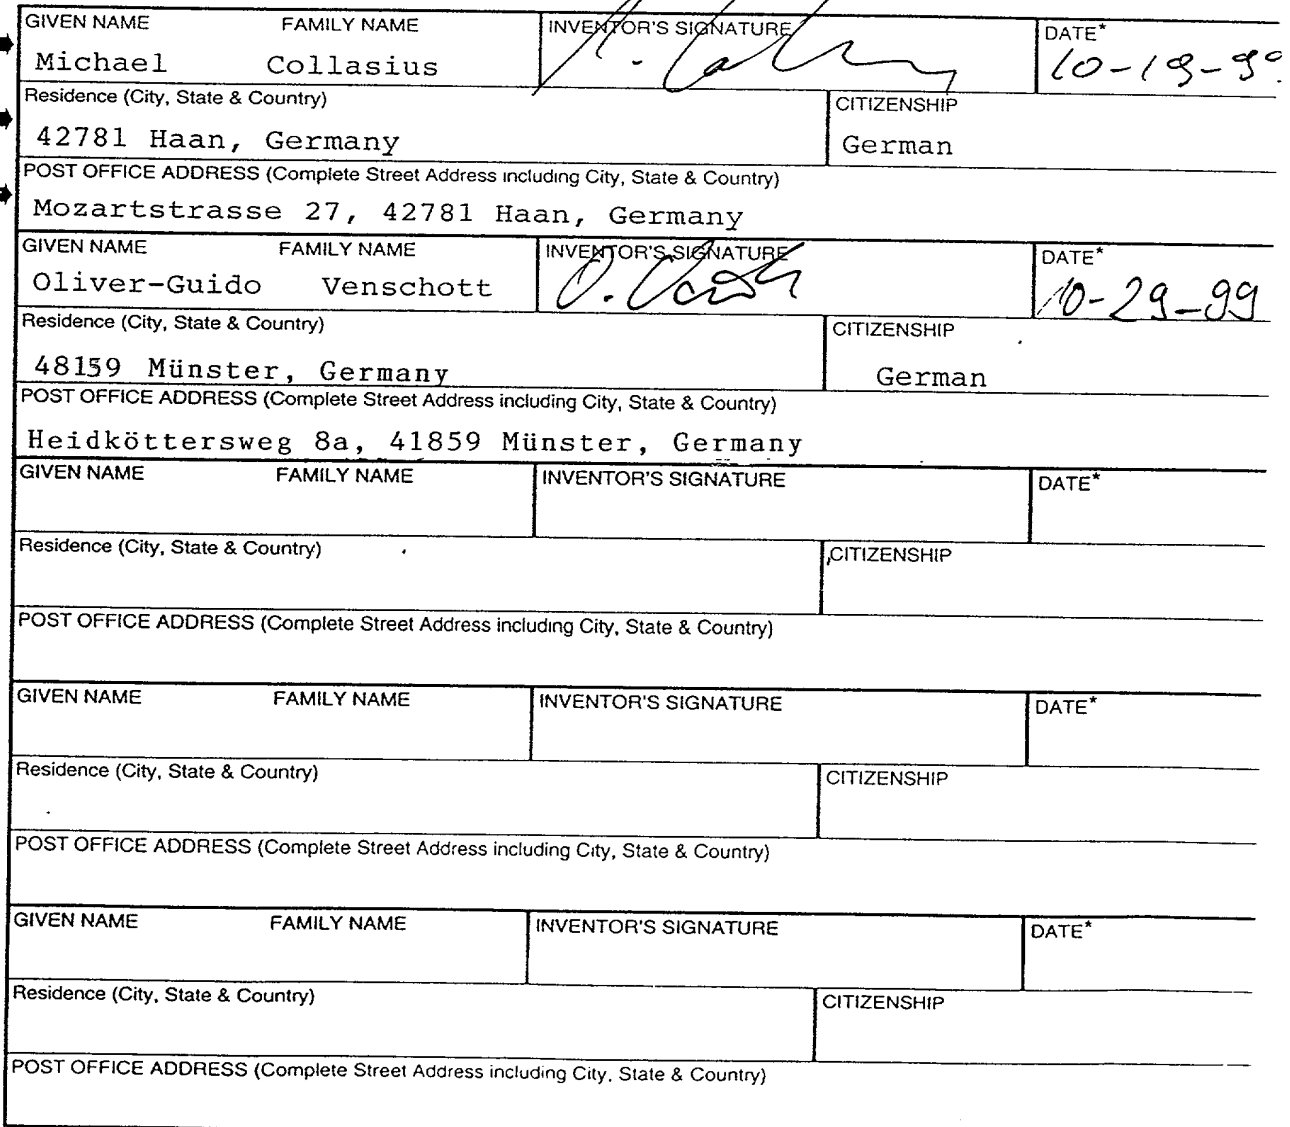 GIVEN NAME FAMILY NAME INVENTOR'S SIGNATURE DATE*
Michael Collasius 10-19-99
Residence (City, State & Country) CITIZENSHIP
42781 Haan, Germany German
POST OFFICE ADDRESS (Complete Street Address including City, State & Country)
Mozartstrasse 27, 42781 Haan, Germany
GIVEN NAME FAMILY NAME INVENTOR'S SIGNATURE DATE*
Oliver-Guido Venschott 10-29-99
Residence (City, State & Country) CITIZENSHIP
48159 Münster, Germany German
POST OFFICE ADDRESS (Complete Street Address including City, State & Country)
Heidköttersweg 8a, 41859 Münster, Germany
GIVEN NAME FAMILY NAME INVENTOR'S SIGNATURE DATE*
Residence (City, State & Country) CITIZENSHIP
POST OFFICE ADDRESS (Complete Street Address including City, State & Country)
GIVEN NAME FAMILY NAME INVENTOR'S SIGNATURE DATE*
Residence (City, State & Country) CITIZENSHIP
POST OFFICE ADDRESS (Complete Street Address including City, State & Country)
GIVEN NAME FAMILY NAME INVENTOR'S SIGNATURE DATE*
Residence (City, State & Country) CITIZENSHIP
POST OFFICE ADDRESS (Complete Street Address including City, State & Country)